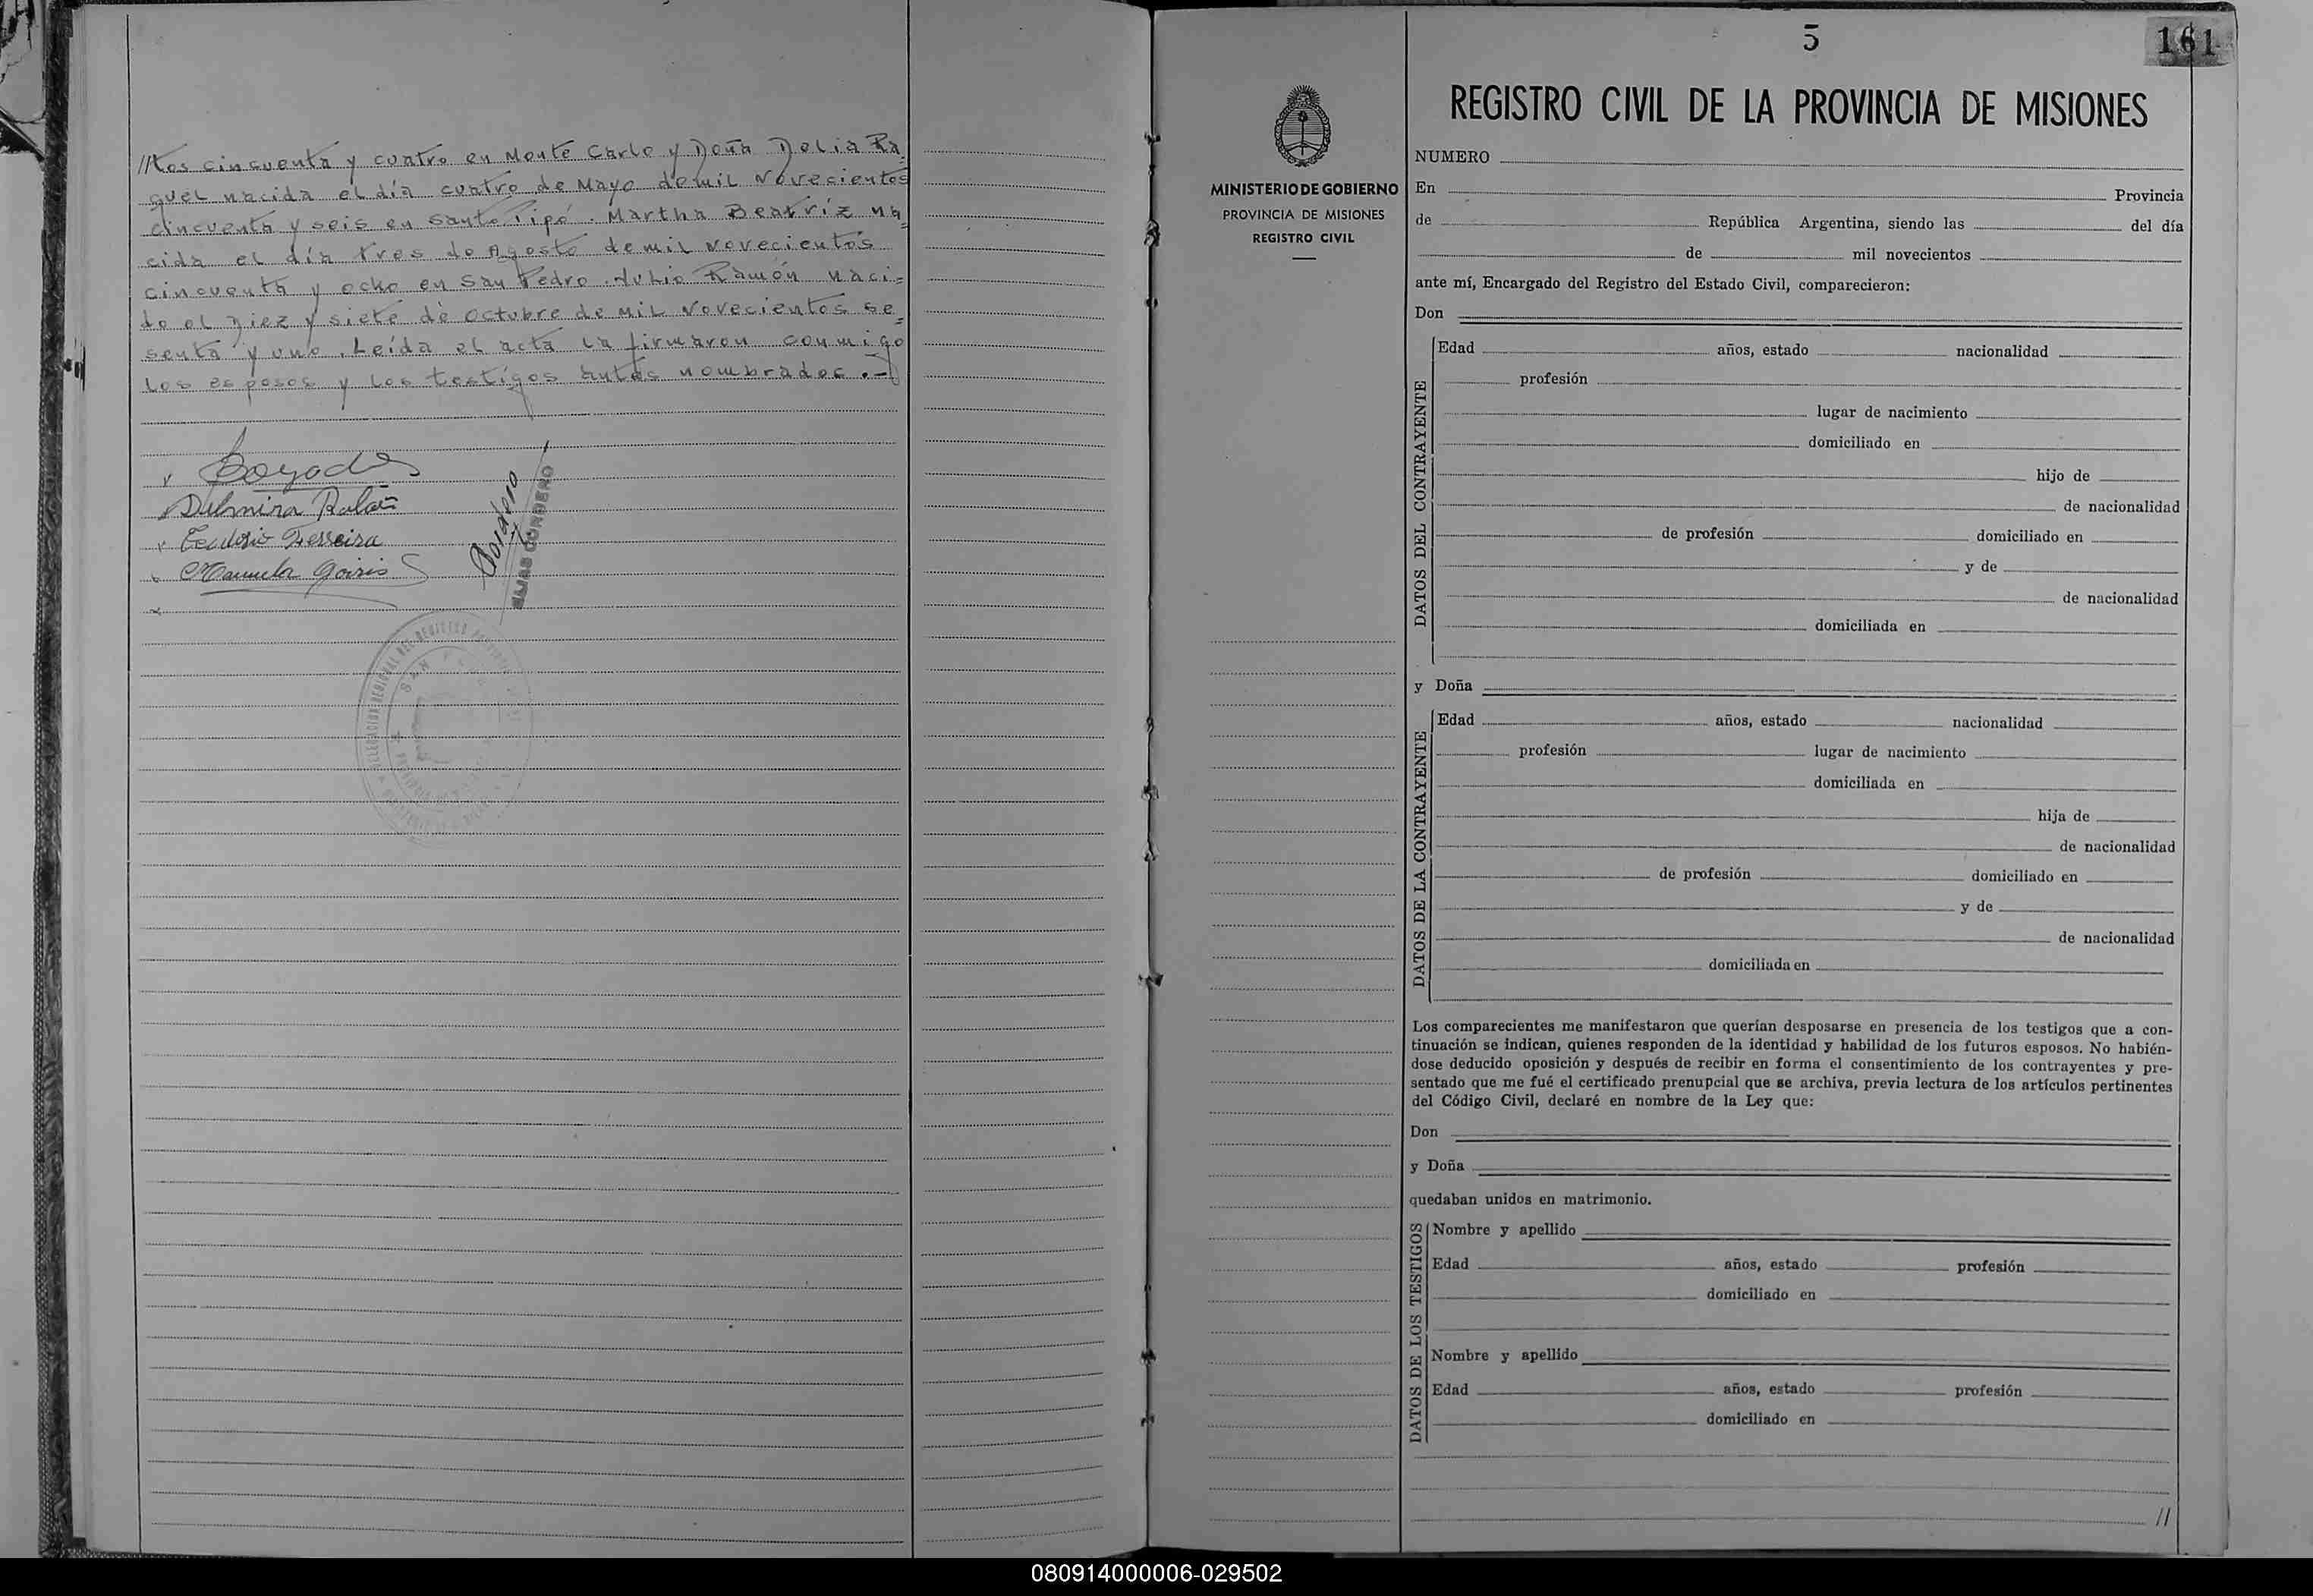 //tos cincuenta y cuatro en Monte Carlo y Doña Delia Ra=
quel nacida el día cuatro de Mayo de mil Novecientos
cincuenta y seis en Santo Pipó. Martha Beatríz na=
cida el día tres de Agosto de mil novecientos
cincuenta y ocho en San Pedro. Julio Ramón naci=
do el Diez y siete de Octubre de mil Novecientos se=
senta y uno. Leída el acta la firmaron conmigo
los esposos y los testigos antes nombrados.-
Delmira
Teodosio Ferreira
Manuela Goiris
ELIAS CORDERO
5
161
MINISTERIO DE GOBIERNO
PROVINCIA DE MISIONES
REGISTRO CIVIL
REGISTRO CIVIL DE LA PROVINCIA DE MISIONES
NUMERO
En Provincia
de República Argentina, siendo las del día
de mil novecientos
ante mí, Encargado del Registro del Estado Civil, comparecieron:
Don
DATOS DEL CONTRAYENTE
Edad años, estado nacionalidad
profesión
lugar de nacimiento
domiciliado en
hijo de
de nacionalidad
de profesión domiciliado en
y de
de nacionalidad
domiciliada en
y Doña
DATOS DE LA CONTRAYENTE
Edad años, estado nacionalidad
profesión lugar de nacimiento
domiciliada en
hija de
de nacionalidad
de profesión domiciliado en
y de
de nacionalidad
domiciliada en
Los comparecientes me manifestaron que querían desposarse en presencia de los testigos que a con-
tinuación se indican, quienes responden de la identidad y habilidad de los futuros esposos. No habién-
dose deducido oposición y después de recibir en forma el consentimiento de los contrayentes y pre-
sentado que me fué el certificado prenupcial que se archiva, previa lectura de los artículos pertinentes
del Código Civil, declaré en nombre de la Ley que:
Don
y Doña
quedaban unidos en matrimonio.
DATOS DE LOS TESTIGOS
Nombre y apellido
Edad años, estado profesión
domiciliado en
Nombre y apellido
Edad años, estado profesión
domiciliado en
//
080914000006-029502